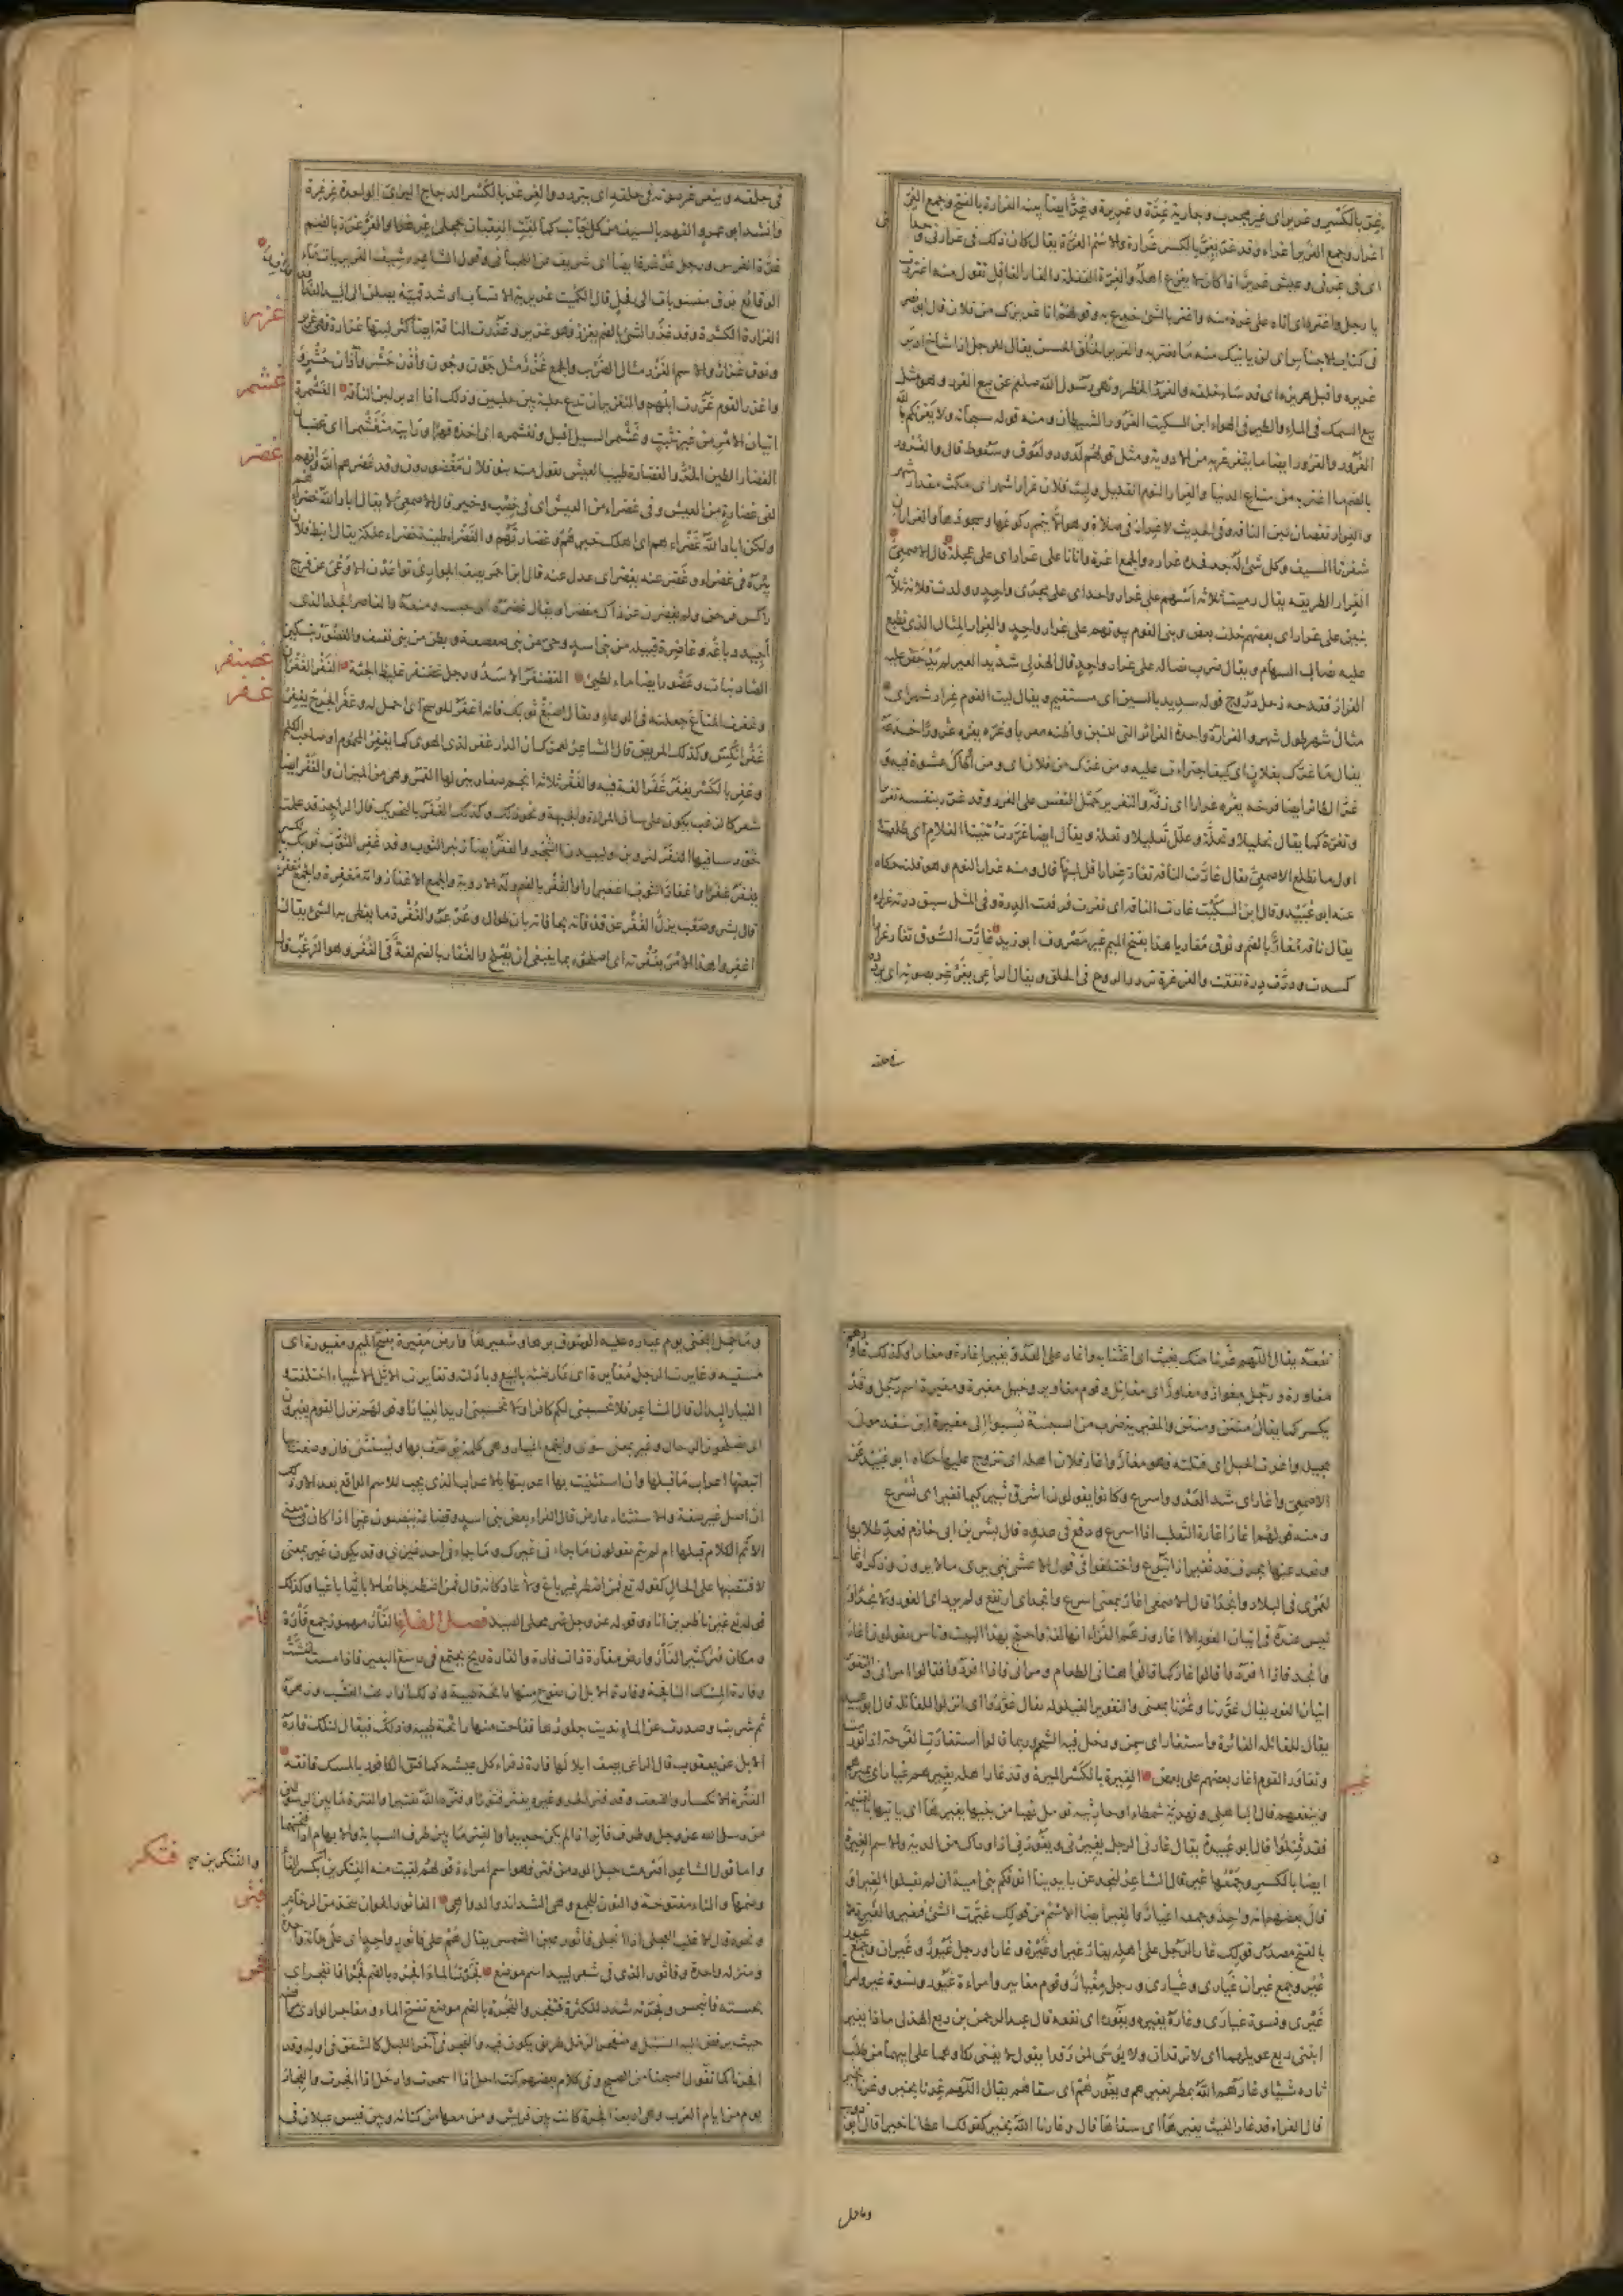 غِرٌّ بالكسر وغرير اى غير مجرب وجارية غِرَّة وغريرة وغِرٌّ ايضا بينة الغرارة بالفتح وجمع الغِرّ
اغرار وجمع الغرير اغراء وقد غَرَّ يَغِرُّ بالكسر غرارة والاسم الغرّة يقال كان ذلك فى غرارتى وحداثتى
اى فى غرتى وعيش غرير اذا كان لا يفزع اهله والغِرّة الغفلة والغار الغافل تقول منه اغتررت
يا رجل واغتره اى اتاه على غرة منه واغتر بالشئ خدع به وقولهم انا غريرك من فلان قال ابو نصر
فى كتاب الاجناس اى لن ياتيك منه ما تغتر به والغرير الخلق الحسن يقال للرجل اذا شاخ ادبر
غريره واقبل هريره اى قد ساء خلقه والغرر الخطر ونهى رسول الله صلعم عن بيع الغرر وهو مثل
بيع السمك فى الماء والطير فى الهواء ابن السكيت الغرور الشيطان ومنه قوله سبحانه ولا يغرنكم بالله
الغرور والغرور ايضا ما يتغرغر به من الادوية ومثل قولهم لدود ولعوق وسعوط قال والغرور
بالضم ما اغتر به من متاع الدنيا والغرار النوم القليل ولبث فلان غرار شهر اى مكث مقدار شهر
والغرار نقصان لبن الناقة وفى الحديث لا غرار فى صلاة وهو ان لا يتم ركوعها وسجودها والغراران
شفرتا السيف وكل شئ له حد فحده غراره والجمع اغرة واتانا على غرار اى على عجلة قال الاصمعى
الغرار الطريقة يقال رميت ثلاثة اسهم على غرار واحد اى على مجرى واحد وولدت فلانة ثلاثة
بنين على غرار اى بعضهم خلف بعض وبنى القوم بيوتهم على غرار واحد والغرار المثال الذى يطبع
عليه نصال السهام ويقال ضرب نصاله على غرار واحد قال الهذلى سديد العير لم يدحض عليه
الغرار فقدحه زعل دروج قوله سديد بالسين اى مستقيم ويقال ليت اليوم غرار شهر اى
مثال شهر طول شهر والغرارة واحدة الغرائر التى للتبن واظنه معربا وغره يغره غرورا خدعه
يقال ما غرك بفلان اى كيف اجترات عليه ومن غرك من فلان اى ومن اوطاك عشوة فيه و
غر الطائر ايضا فرخه يغره غرارا اى زقه والتغرير حمل النفس على الغرر وقد غرر بنفسه تغريرا
وتغرة كما يقال تحليلا وتحلة وعلل تعليلا وتعلة ويقال ايضا غررت ثنيتا الغلام اى طلعت
اول ما تطلع الاصمعى يقال غارت الناقة تغار غرارا قل لبنها قال ومنه غرار النوم وهو قلته حكاه
عنه ابو عبيد وقال ابن السكيت غارت الناقة اى نفرت فرفعت الدرة وفى المثل سبق درته غراره
يقال ناقة مغار بالضم ونوق مغار يا هذا بفتح الميم غير مصروف ابو زيد غارت السوق تغار غرارا
كسدت ودرت درة نفقت والغرغرة تردد الروح فى الحلق ويقال الراعى يغرغر بصوته اى يردده
فى حلقه
فى حلقه ويتغرغر صوته فى حلقه اى يتردد والغرغر بالكسر الدجاج البرى الواحدة غرغرة
وانشد ابو عمرو الفهم بالسيف من كل جانب كما لفت العقبان حجلى وغرغرا والغر غرة بالضم
الغزارة الكثرة وقد غزر الشئ بالضم يغزر فهو غزير وغزرت الناقة ايضا كثر لبنها غزارة فهى غزيرة
ونوق غزار والاسم الغزر مثال الضرب والجمع غزر مثل جون وجون واذن حشر واذان حشر
واغزر القوم غزرت ابلهم والتغزير ان تدع حلبة بين حلبتين وذلك اذا ادبر لبن الناقة الغشمرة
اتيان الامر من غير تثبت وغشمر السيل اقبل وتغشمره اى اخذه قهرا ورايته متغشمرا اى غضبان
الغضار الطين الحر والغضارة طيب العيش تقول منه بنو فلان مغضورون وقد غضرهم الله وانهم
لفى غضارة من العيش وفى غضراء من العيش اى فى خصب وخير قال الاصمعى لا يقال اباد الله خضراءهم
ولكن اباد الله غضراءهم اى اهلك خيرهم وغضارتهم والغضراء طينة خضراء علكة يقال انبط فلان
بئره فى غضراء وغضر عنه يغضر اى عدل عنه قال ابن احمر يصف الجوارى تواعدن الا وعى عن فرج
راكس فرحن ولم يغضرن عن ذاك مغضرا ويقال غضره اى حبسه ومنعه والغاضر الجلد الذى
اجيد دباغه وغاضرة قبيلة من بنى اسد وحى من بنى صعصعة وبطن من ثقيف والغضور بتسكين
الضاد نبات وغضور ايضا ماء لطيئ الغضنفر الاسد ورجل غضنفر غليظ الجثة الغفر الغفران
وغفرت المتاع جعلته فى الوعاء ويقال اصبغ ثوبك فانه اغفر للوسخ اى احمل له وغفر الجرح يغفر
غفرا نكس وكذلك المريض قال الشاعر لعمرك ان الدار غفر لذى الهوى كما يغفر المحموم او صاحب الكلم
وغفر بالكسر يغفر غفرا لغة فيه والغفر ثلاثة انجم صغار ينزلها القمر وهى من الميزان والغفر ايضا
شعر كالزغب يكون على ساق المراة والجبهة ونحو ذلك وكذلك الغفر بالتحريك قال الراجز قد علمت
يغفر غفرا واغفار الثوب اغفيرارا والغفر بالضم ولد الاروية والجمع الاغفار وامه مغفرة والجمع مغفرات
قال بشر وصعب يزل الغفر عن قذفاته بحافاته بان طوال وعرعر والغفرة ما يغطى به الشئ يقال
اغفروا هذا الامر بغفرته اى اصلحوه بما ينبغى ان يصلح والغفار بالضم لغة فى الغفر وهو الزغب قال
غزر
غشمر
غضر
غضنفر
غفر
نفعه يقال اللهم غرنا منك بغيث اى اغثنا به واغار على العدو يغير اغارة ومغارا وكذلك غاورهم
مغاورة ورجل مغوار ومغاور اى مقاتل وقوم مغاوير وخيل مغيرة ومغيرة اسم رجل وقد
يكسر كما يقال منتن ومنتن والمغيرية ضرب من السبئية نسبوا الى مغيرة ابن سعد مولى
بجيلة واغرت الحبل اى فتلته فهو مغار واغار فلان اهله اى تزوج عليها حكاه ابو عبيد عن
الاصمعى واغار اى شد العدو واسرع وكانوا يقولون اشرق ثبير كيما نغير اى نسرع
ومنه قولهم اغار اغارة الثعلب اذا اسرع ودفع فى عدوه قال بشر بن ابى خازم فعد طلابها
وتعد عنها بحرف قد تغير اذا تبوع واختلفوا فى قول الاعشى نبى يرى ما لا يرون وذكره اغار
لعمرى فى البلاد وانجدا قال الاصمعى اغار بمعنى اسرع وانجد اى ارتفع ولم يرد اى الغور ولا نجدا و
ليس عنده فى اتيان الغور الا غار وزعم الفراء انها لغة واحتج بهذا البيت وناس يقولون اغار
وانجد فاذا افردوا قالوا غار كما قالوا هنانى الطعام ومرانى فاذا افردوا قالوا امرانى والتغوير
اتيان الغور يقال غورنا وغرنا بمعنى والتغوير القيلولة يقال غوروا اى انزلوا للقائلة قال ابو عبيد
يقال للقائلة الغائرة واستغار اى سمن ودخل فيه الشحم وربما قالوا استغارت القرحة اذا تورمت
وتغاور القوم اغار بعضهم على بعض الغيرة بالكسر الميرة وقد غار اهله يغيرهم غيارا اى يميرهم
وينفعهم قال الباهلى ونهدية شمطاء او حارثية تومل نهبا من بنيها يغيرها اى ياتيها بالغنيمة
فقد قتلوا قال ابو عبيدة يقال غارنى الرجل يغيرنى ويغورنى اذا وداك من الدية والاسم الغيرة
ايضا بالكسر وجمعها غير قال الشاعر لنجدعن بايدينا انوفكم بنى اميمة ان لم تقبلوا الغيرا و
قال بعضهم انه واحد وجمعه اغيار والغير ايضا الاسم من قولك غيرت الشئ فتغير والغيرة
بالفتح مصدر قولك غار الرجل على اهله يغار غيرا وغيرة وغارا ورجل غيور وغيران وجمع غيور
غير وجمع غيران غيارى وغيارى ورجل مغيار وقوم مغايير وامراءة غيور ونسوة غير وامراءة
غيرى ونسوة غيارى وغاره يغيره ويغوره اى نفعه قال عبد الرحمن بن ربع الهذلى ماذا يغير
ابنتى ربع عويلهما لا ترقدان ولا بوسى لمن رقدا يقول لا يغنى بكاوهما على ابيهما من طلب
ثاره شيئا وغارهم الله بمطر يغيرهم ويغورهم اى سقاهم يقال اللهم غرنا بخير وغرنا بخير
قال الفراء قد غار الغيث يغيرها اى سقاها قال وغارنا الله بخير كقولك اعطانا خيرا قال ابو ذويب
غير
وما حمل
وما حمل البختى يوم غياره عليه الوسوق برها وشعيرها وارض مغيرة بفتح الميم ومغيورة اى
مسقية وغايرت الرجل مغايرة اى عارضته بالبيع وبادلته وتغايرت الاشياء اختلفت
الغيار البدال قال الشاعر فلا تحسبنى لكم كافرا ولا تحسبنى اريد الغيارا وقولهم نزل القوم يغيرون
اى يصلحون الرحال وغير بمعنى سوى والجمع اغيار وهى كلمة يوصف بها ويستثنى فان وصفت بها
اتبعتها اعراب ما قبلها وان استثنيت بها اعربتها بالاعراب الذى يجب للاسم الواقع بعد الا وذلك
ان اصل غير صفة والاستثناء عارض قال الفراء بعض بنى اسد وقضاعة ينصبون غيرا اذا كان فى معنى
الا تم الكلام قبلها ام لم يتم يقولون ما جاءنى غيرك وما جاءنى احد غيرك وقد يكون غير بمعنى
لا فتنصبها على الحال كقوله تع فمن اضطر غير باغ ولا عاد كانه قال فمن اضطر جائعا لا باغيا وكذلك
قوله تع غير ناظرين اناه وقوله عز وجل غير محلى الصيد فصل الفاء الفار مهموز جمع فارة
ومكان فئر كثير الفار وارض مفارة ذات فارة والفارة ريح يجتمع فى رسغ البعير فاذا مست انفشت
وفارة المسك النافجة وفارة الابل ان تفوح منها رائحة طيبة وذلك اذا رعت العشب وزهره
ثم شربت وصدرت عن الماء نديت جلودها ففاحت منها رائحة طيبة فيقال لتلك فارة
الابل عن يعقوب قال الراعى يصف ابلا لها فارة ذفراء كل عشية كما فتق الكافور بالمسك فاتقه
الفترة الانكسار والضعف وقد فتر الحر وغيره يفتر فتورا وفتره الله تفتيرا والفترة ما بين الرسولين
من رسل الله عز وجل وطرف فاتر اذا لم يكن حديدا والفتر ما بين طرف السبابة والابهام اذا فتحتهما
واما قول الشاعر اصرمت حبل الود من فتر فهو اسم امراءة قولهم لقيت منه الفتكرين بكسر الفاء
وضمها والتاء مفتوحة والنون للجمع وهى الشدائد والدواهى الفاثور الخوان يتخذ من الرخام
ونحوه قال الاغلب العجلى اذا انجلى فاثور عين الشمس يقال هم على فاثور واحد اى على مائدة واحدة
ومنزلة واحدة وفاثور الذى فى شعر لبيد اسم موضع فجرت الماء افجره بالضم فجرا فانفجر اى
بجسته فانبجس وفجرته شدد للكثرة فتفجر والفجرة بالضم موضع تفتح الماء ومفاجر الوادى مرافضه
حيث يرفض اليه السيل ومنفجر الرمل طريق يكون فيه والفجر فى اخر الليل كالشفق فى اوله وقد
افجرنا كما تقول اصبحنا من الصبح وفى كلام بعضهم كنت احل اذا اسحرت وارحل اذا افجرت والفجار
يوم من ايام العرب وهى اربعة افجرة كانت بين قريش ومن معها من كنانة وبين قيس عيلان فى
فار
فتر
فتكر
فثر
فجر